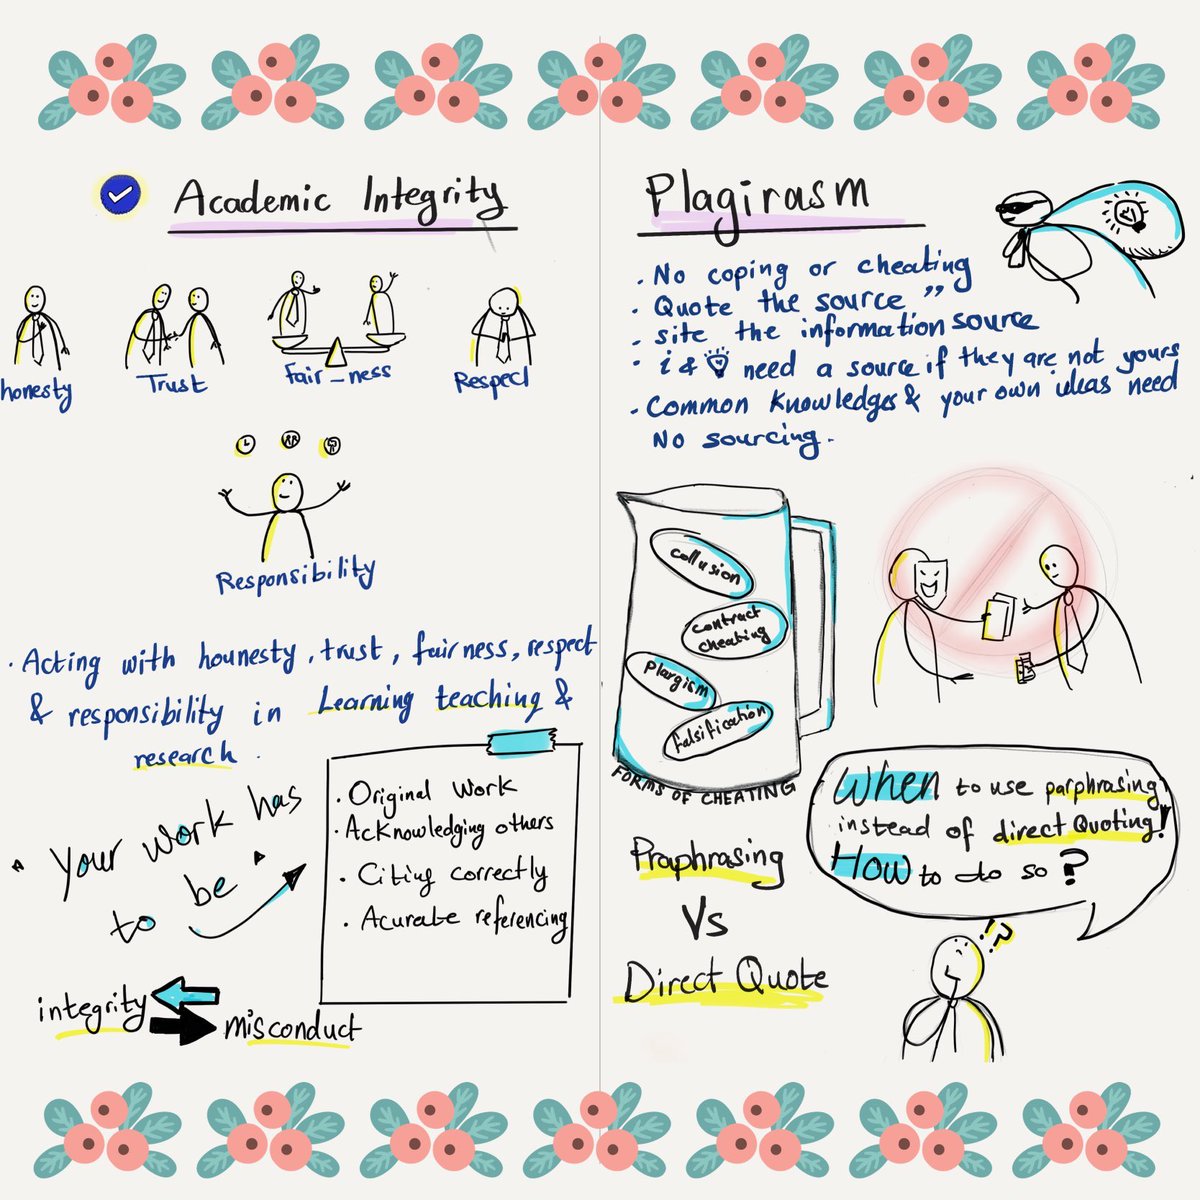 Academic Integrity
honesty
Trust
Fair-ness
Respect
Responsibility
. Acting with hounesty, trust, fairness, respect
& responsibility in Learning teaching &
research.
Your work has
to be
. Original Work
. Acknowledging others
. Citing correctly
. Acurate referencing
integrity
misconduct
Plagirasm
. No coping or cheating
. Quote the source ”
. site the information source
. i & need a source if they are not yours
. Common Knowledges & your own ideas need
No sourcing.
collusion
contract
cheating
plargism
falsification
FORMS OF CHEATING
Praphrasing
Vs
Direct Quote
When to use parphrasing
instead of direct Quoting!
How to do so?
!?